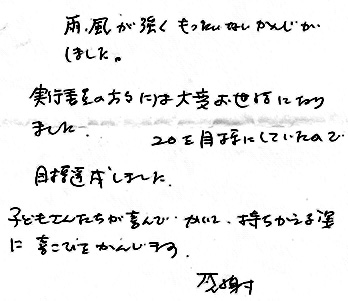 雨、風が強くもったいないかんじが
しました。
実行委員の方々には大変お世話になり
ました。 20を目標にしていたので
目標達成しました。
子どもさんたちが喜んで、かいて、持ちかえる姿
に喜こびをかんじます。
感謝